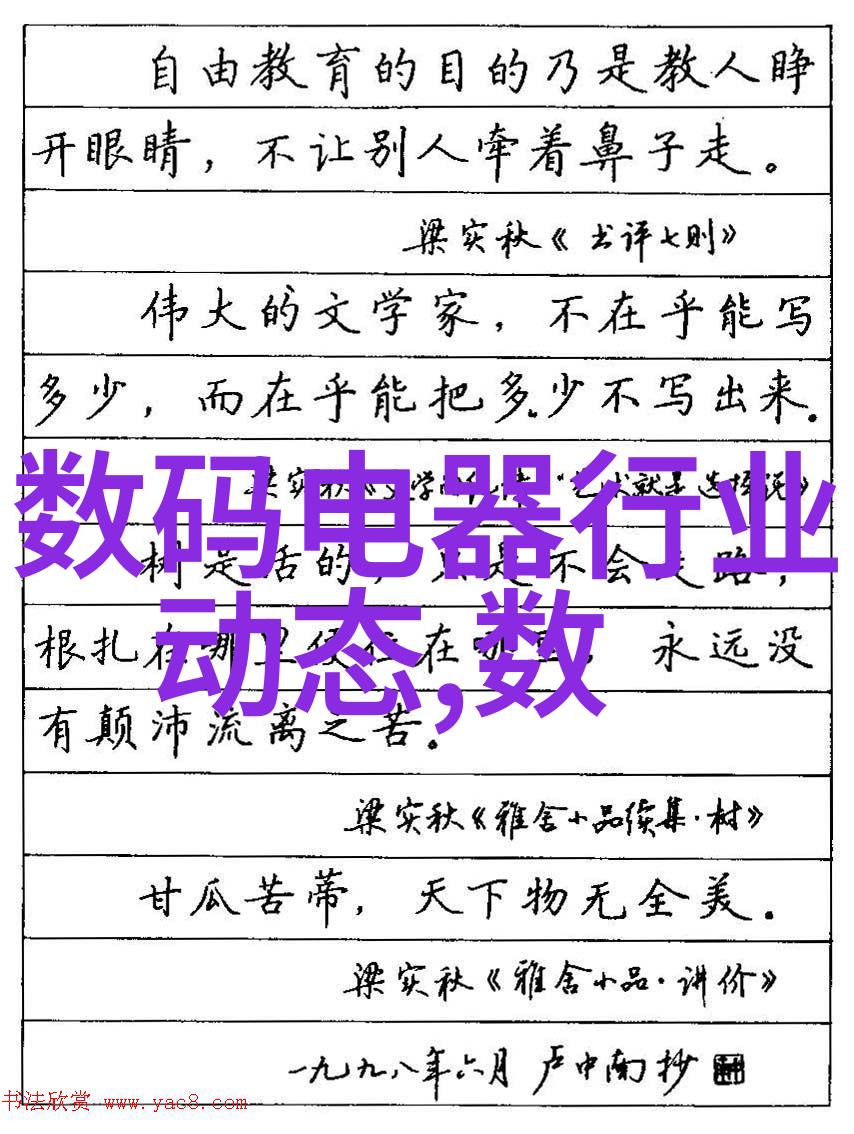 自由教育的目的乃是教人睁
开眼睛，不让别人牵着鼻子走。
梁实秋《书评七则》
伟大的文学家，不在乎能写
多少，而在乎能把多少不写出来．
数码电器行业
动态,数
树是活的，只是不会走路，
根扎在哪里便住在哪里，永远没
有颠沛流离之苦。
梁实秋《雅舍小品续集·树》
甘瓜苦蒂，天下物无全美．
梁实秋《雅舍小品·讲价》
一九九八年六月 卢中南抄
书法欣赏 www.yac8.com